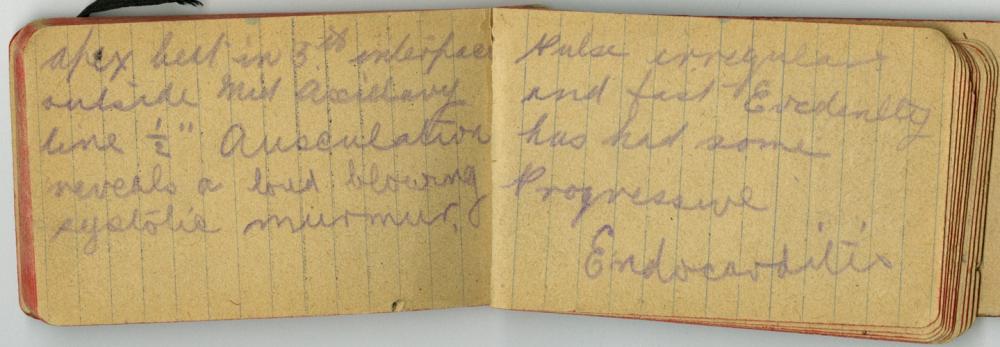 apex beat in 5th interspace
outside Mid Axillary
line ½" Ausculation
reveals a loud blowing
systolic murmur.
Pulse irregular
and fast Evedently
has had some
Progressive
Endocarditis